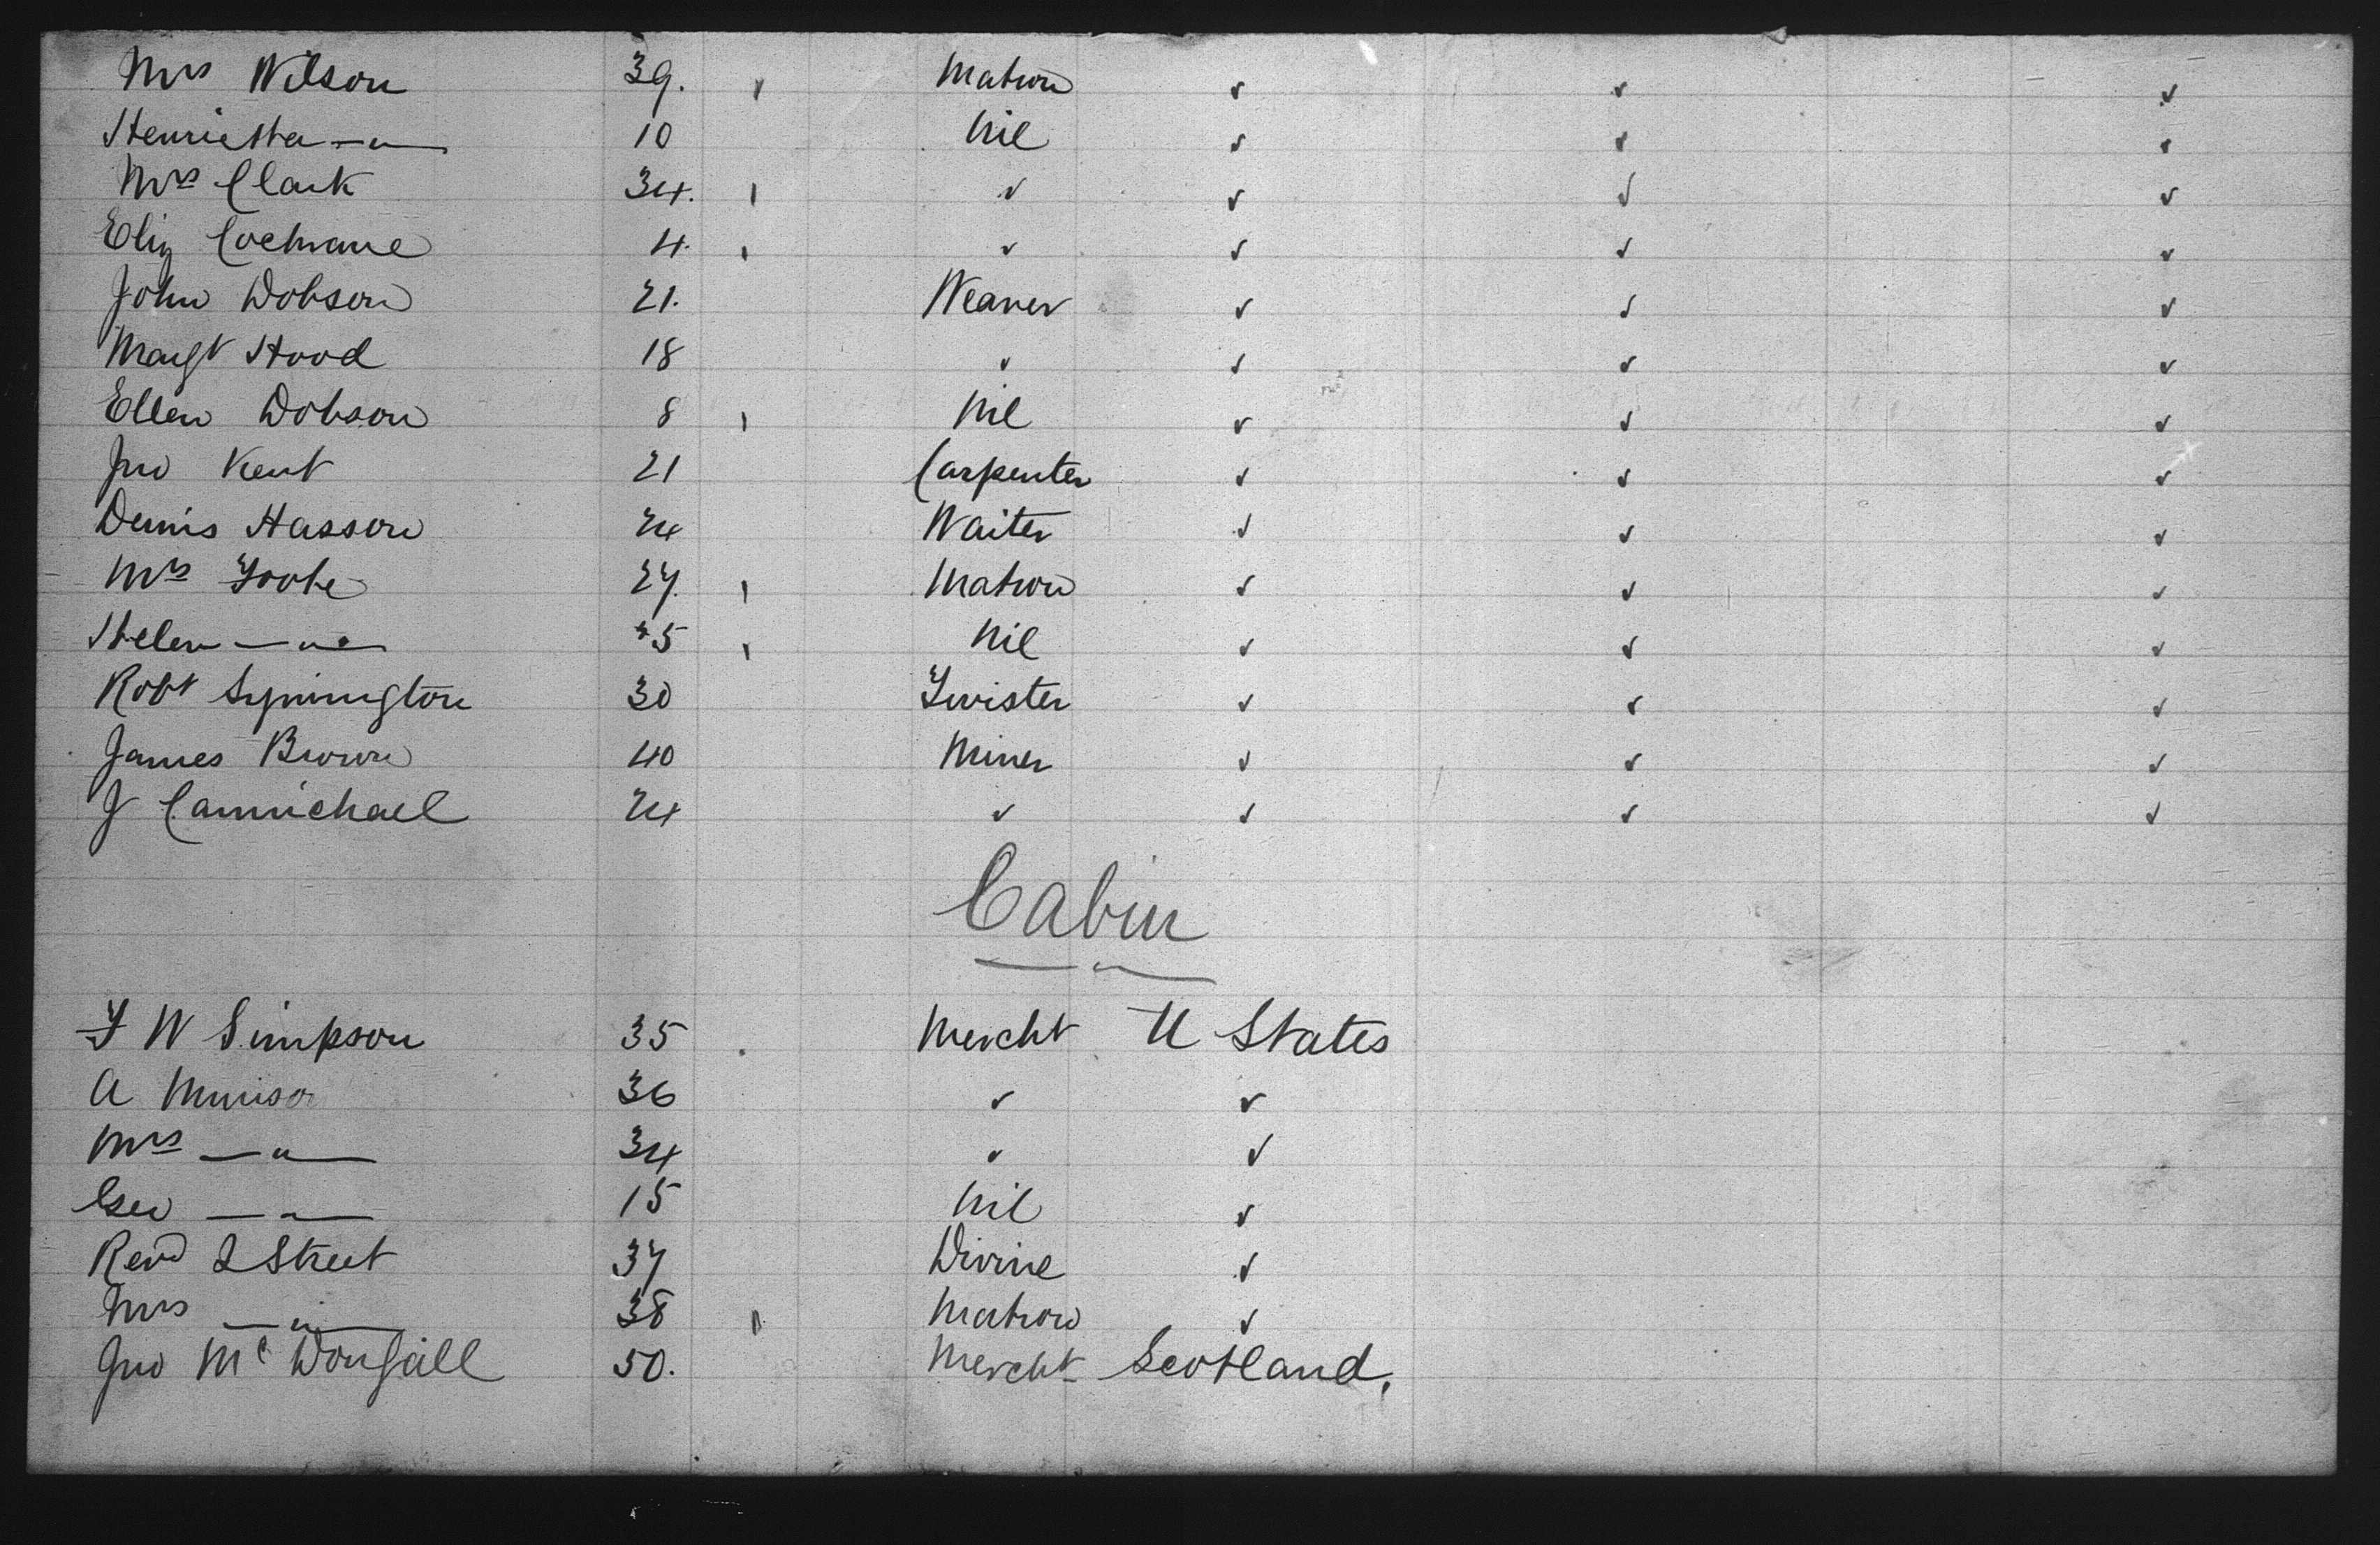 Mrs Wilson 39. ✓ Matron ✓ ✓ ✓
Henrietta —"— 10 Nil ✓ ✓ ✓
Mrs Clark 34. ı ✓ ✓ ✓ ✓
Eliz Cochrane 4. ı ✓ ✓ ✓ ✓
John Dobson 21. Weaver ✓ ✓ ✓
Margt Hood 18 ✓ ✓ ✓ ✓
Ellen Dobson 8 ı Nil ✓ ✓ ✓
Jno Kent 21 Carpenter ✓ ✓ ✓
Dennis Hasson 24 Waiter ✓ ✓ ✓
Mrs 27. ı Matron ✓ ✓ ✓
Helen —"— 5 ı Nil ✓ ✓ ✓
Robt Symington 30 Twister ✓ ✓ ✓
James Brown 40 Miner ✓ ✓ ✓
J Carmichael 24 ✓ ✓ ✓ ✓
Cabin
—"—
W Simpson 35 Mercht U States
A Munison 36 ✓ ✓
Mrs —"— 34 ✓ ✓
Geo —"— 15 Nil ✓
Revd Street 37 Divine ✓
Mrs —"— 38 ı Matron ✓
Jno McDougall 50. Mercht Scotland.